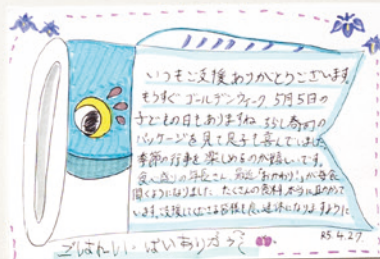 いつもご支援ありがとうございます。
もうすぐゴールデンウィーク 5月5日の
子どもの日もありますね
パッケージを見て息子も喜んでいました
季節の行事を楽しめるのが嬉しいです。
食べ盛りの年長さん、最近"おかわり!"が毎食
聞くようになりました。たくさんの食料、本当に助かって
います。支援してくださる皆様も良い連休になりますように
R5.4.27.
ごはんいっぱいありがとう